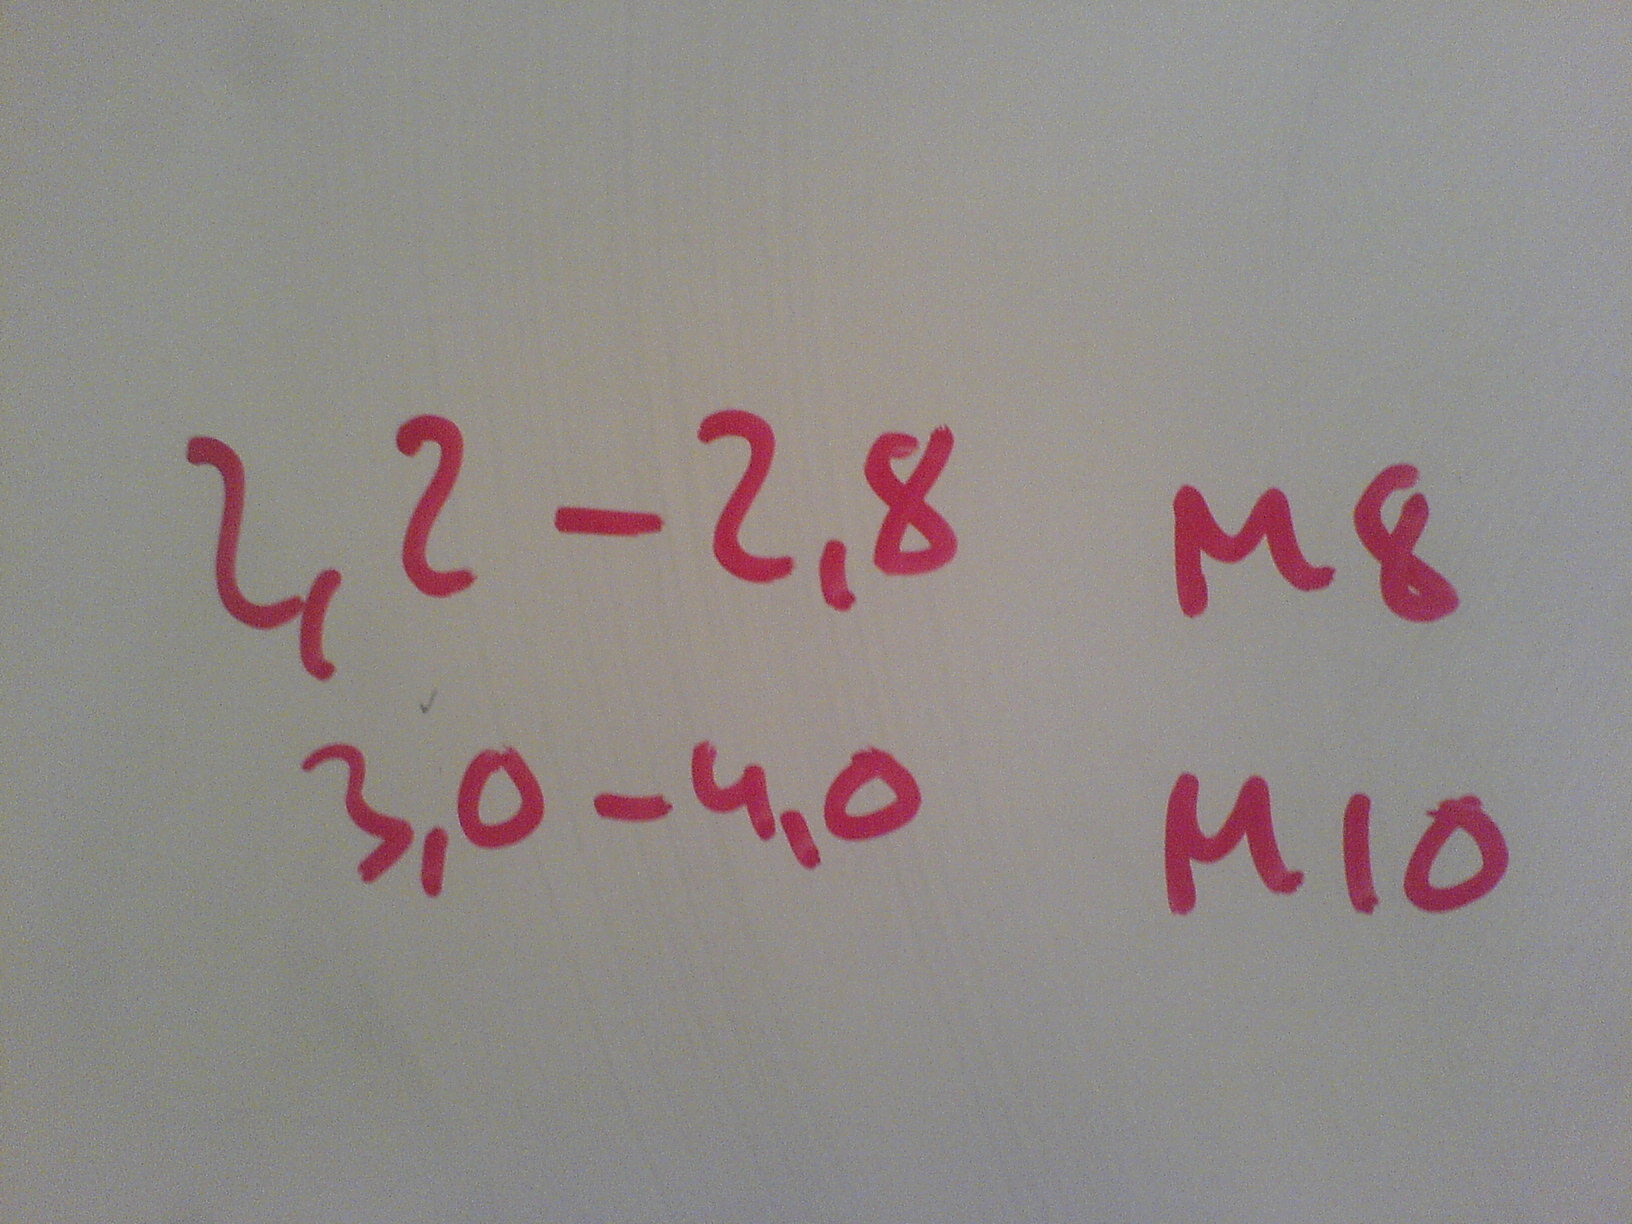 2,2 - 2,8 M8
3,0 - 4,0 M10